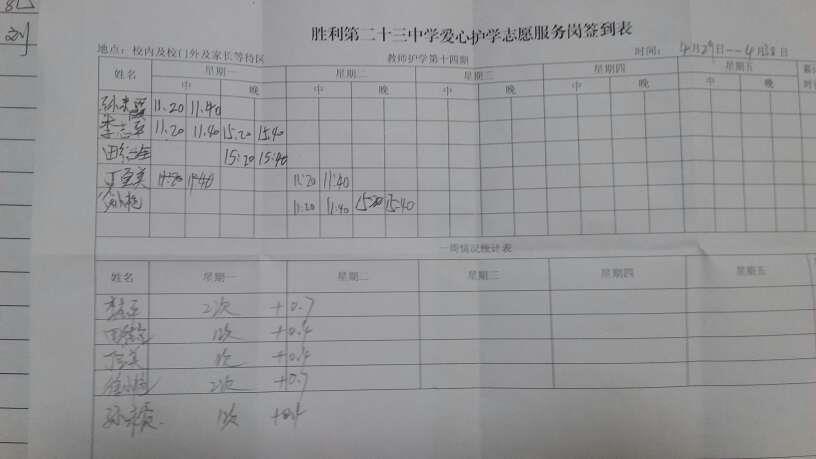 胜利第二十三中学爱心护学志愿服务岗签到表
地点：校内及校门外及家长等待区 教师护学第十四期 时间： 4月29日--4月30日
姓名 星期一 星期二 星期三 星期四 星期五
中 晚 中 晚 中 晚 中 晚 中 晚
11.20 11.40
李志军 11.20 11.40 15.20 15.40
田 15:20 15:40
11:20 11:40 11:20 11:40
11:20 11:40 15:20 15:40
一周情况统计表
姓名 星期一 星期二 星期三 星期四 星期五
2次 +0.7
田 1次 +0.4
1次 +0.4
2次 +0.7
孙 1次 +0.4
刘